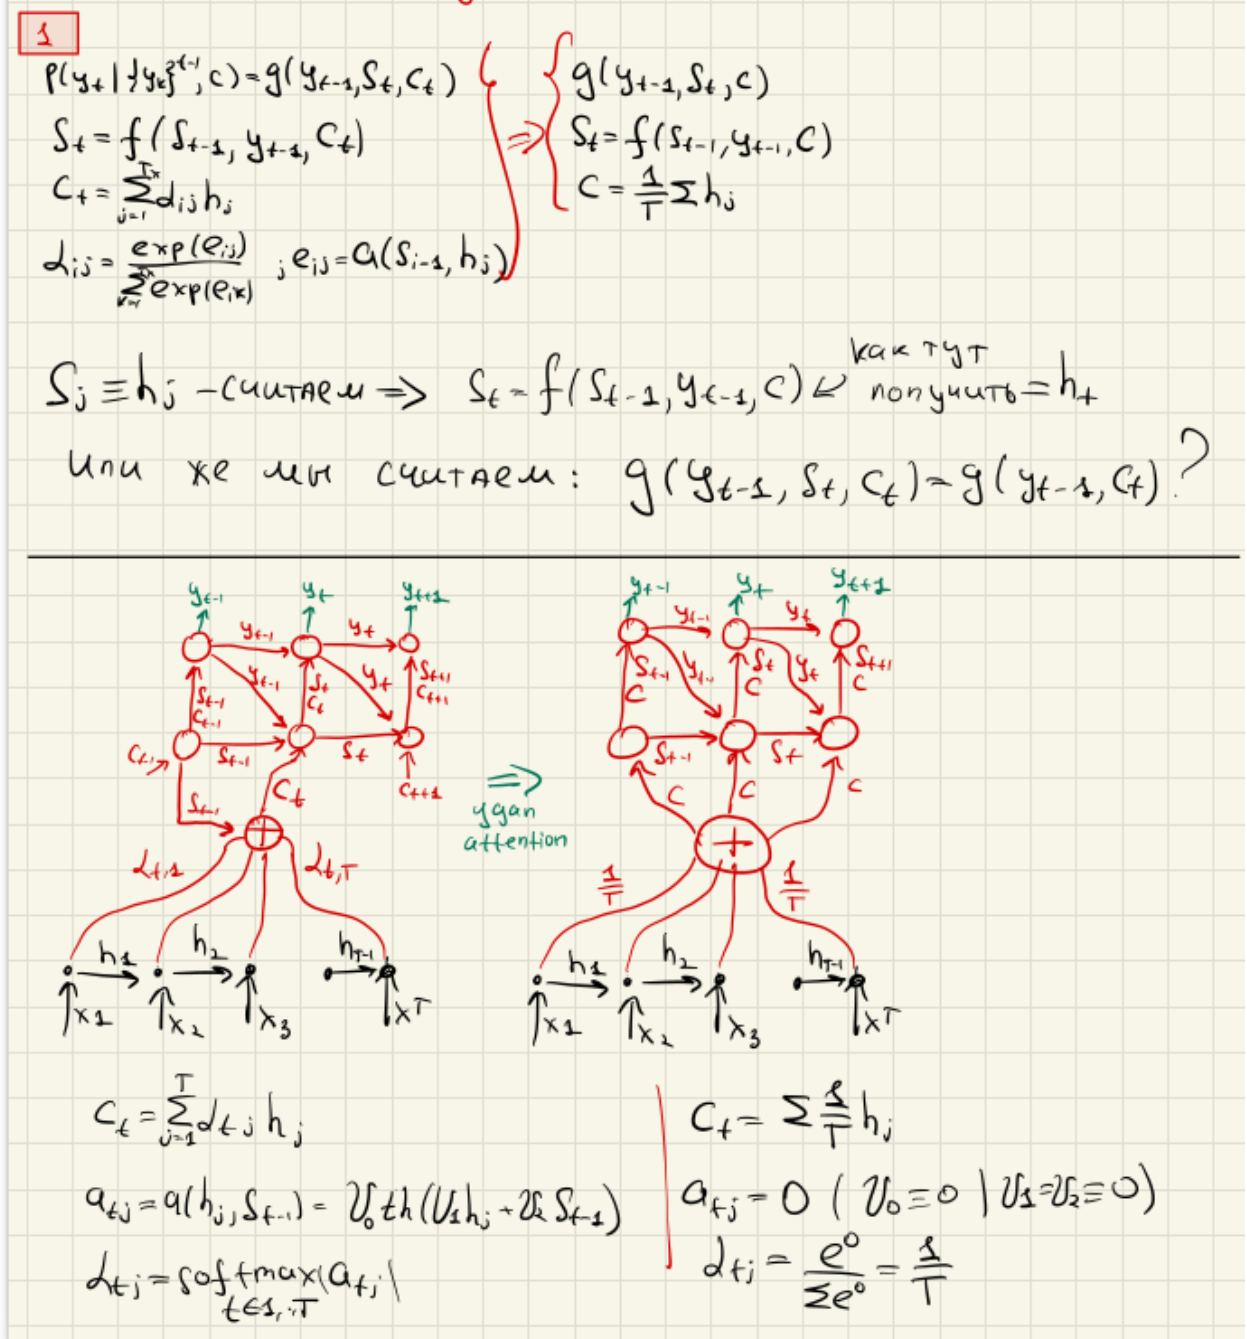 1
p(y_t | {y_k}^{t-1}, c) = g(y_{t-1}, S_t, C_t)
S_t = f(S_{t-1}, y_{t-1}, C_t)
C_t = Σ_{j=1}^{T_x} α_{ij} h_j
α_{ij} = exp(e_{ij}) / Σ exp(e_{ik}) ; e_{ij} = a(S_{i-1}, h_j)
⇒
g(y_{t-1}, S_t, C)
S_t = f(S_{t-1}, y_{t-1}, C)
C = 1/T Σ h_j
S_j ≡ h_j - считаем ⇒ S_t = f(S_{t-1}, y_{t-1}, C) ↙ как тут
получить = h_t
Или же мы считаем: g(y_{t-1}, S_t, C_t) = g(y_{t-1}, C_t)?
y_{t-1} y_t y_{t+1}
y_{t-1} y_t
y_{t-1} y_t
S_{t-1} S_t S_{t+1}
C_{t-1} C_t C_{t+1}
C_{t-1} S_{t-1} S_t
C_t C_{t+1}
S_{t-1}
+
α_{t,1} α_{t,T}
h_1 h_2 h_{T-1}
x_1 x_2 x_3 x_T
⇒
удал
attention
y_{t-1} y_t y_{t+1}
y_{t-1} y_t
S_{t-1} y_{t-1} S_t y_t S_{t+1}
C C C
S_{t-1} S_t
C C C
+
1/T 1/T
h_1 h_2 h_{T-1}
x_1 x_2 x_3 x_T
C_t = Σ_{j=1}^{T} α_{tj} h_j
a_{tj} = a(h_j, S_{t-1}) = V_0 th(V_1 h_j + V_2 S_{t-1})
α_{tj} = softmax(a_{tj})
t∈1,..T
C_t = Σ 1/T h_j
a_{tj} = 0 ( V_0 ≡ 0 | V_1 = V_2 ≡ 0)
α_{tj} = e^0 / Σe^0 = 1/T